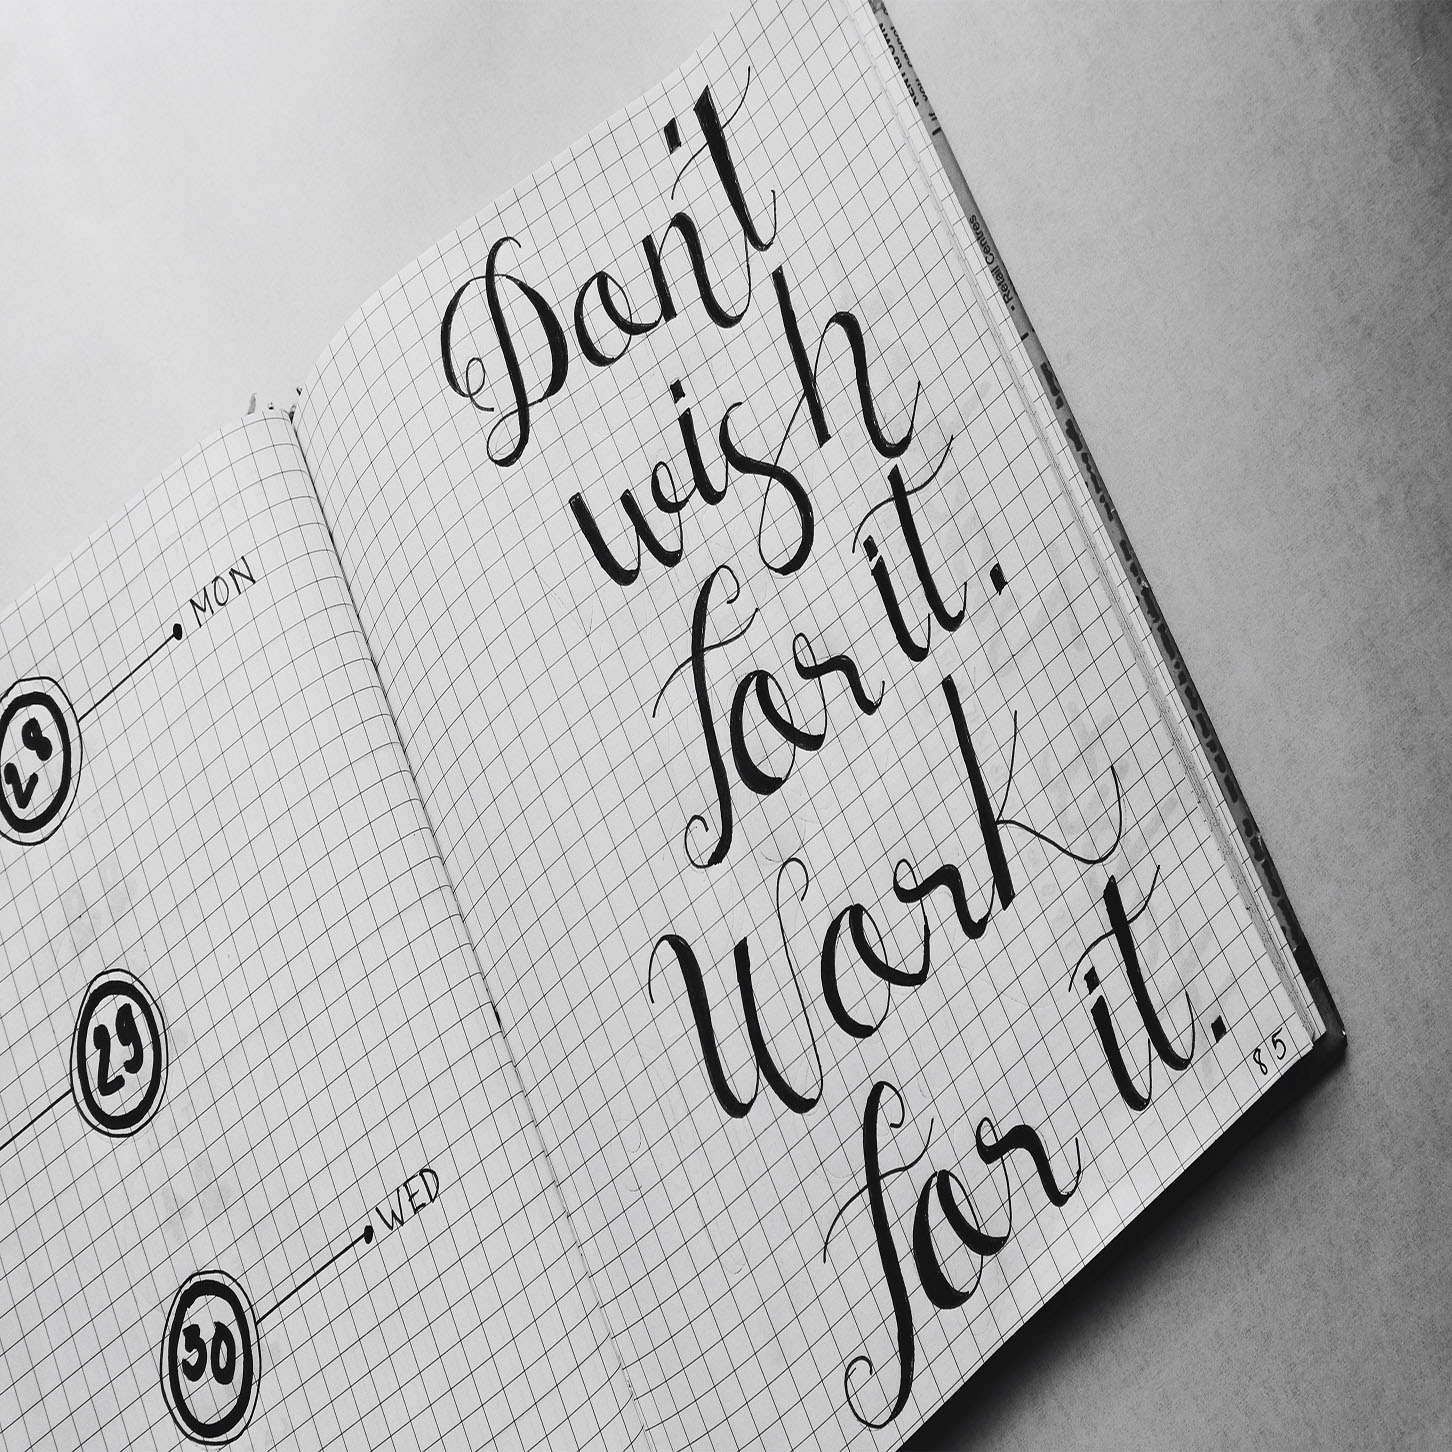 28
MON
29
30
WED
Don't
wish
for it.
Work
for it.
85
• Retail Centres